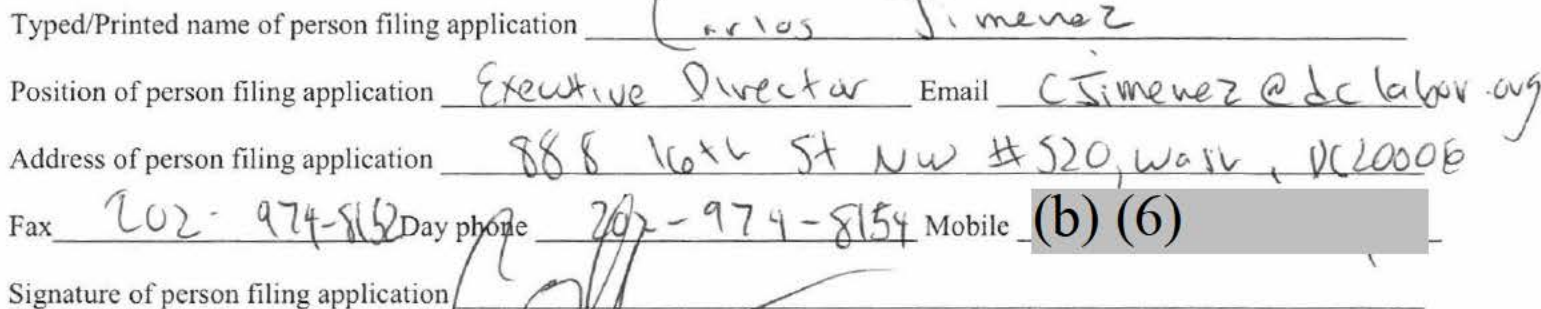 Typed/Printed name of person filing application Carlos Jimenez
Position of person filing application Executive Director Email CJimenez@dclabor.org
Address of person filing application 888 16th St NW #520, Wash, DC 20006
Fax 202-974-8152 Day phone 202-974-8154 Mobile (b) (6)
Signature of person filing application